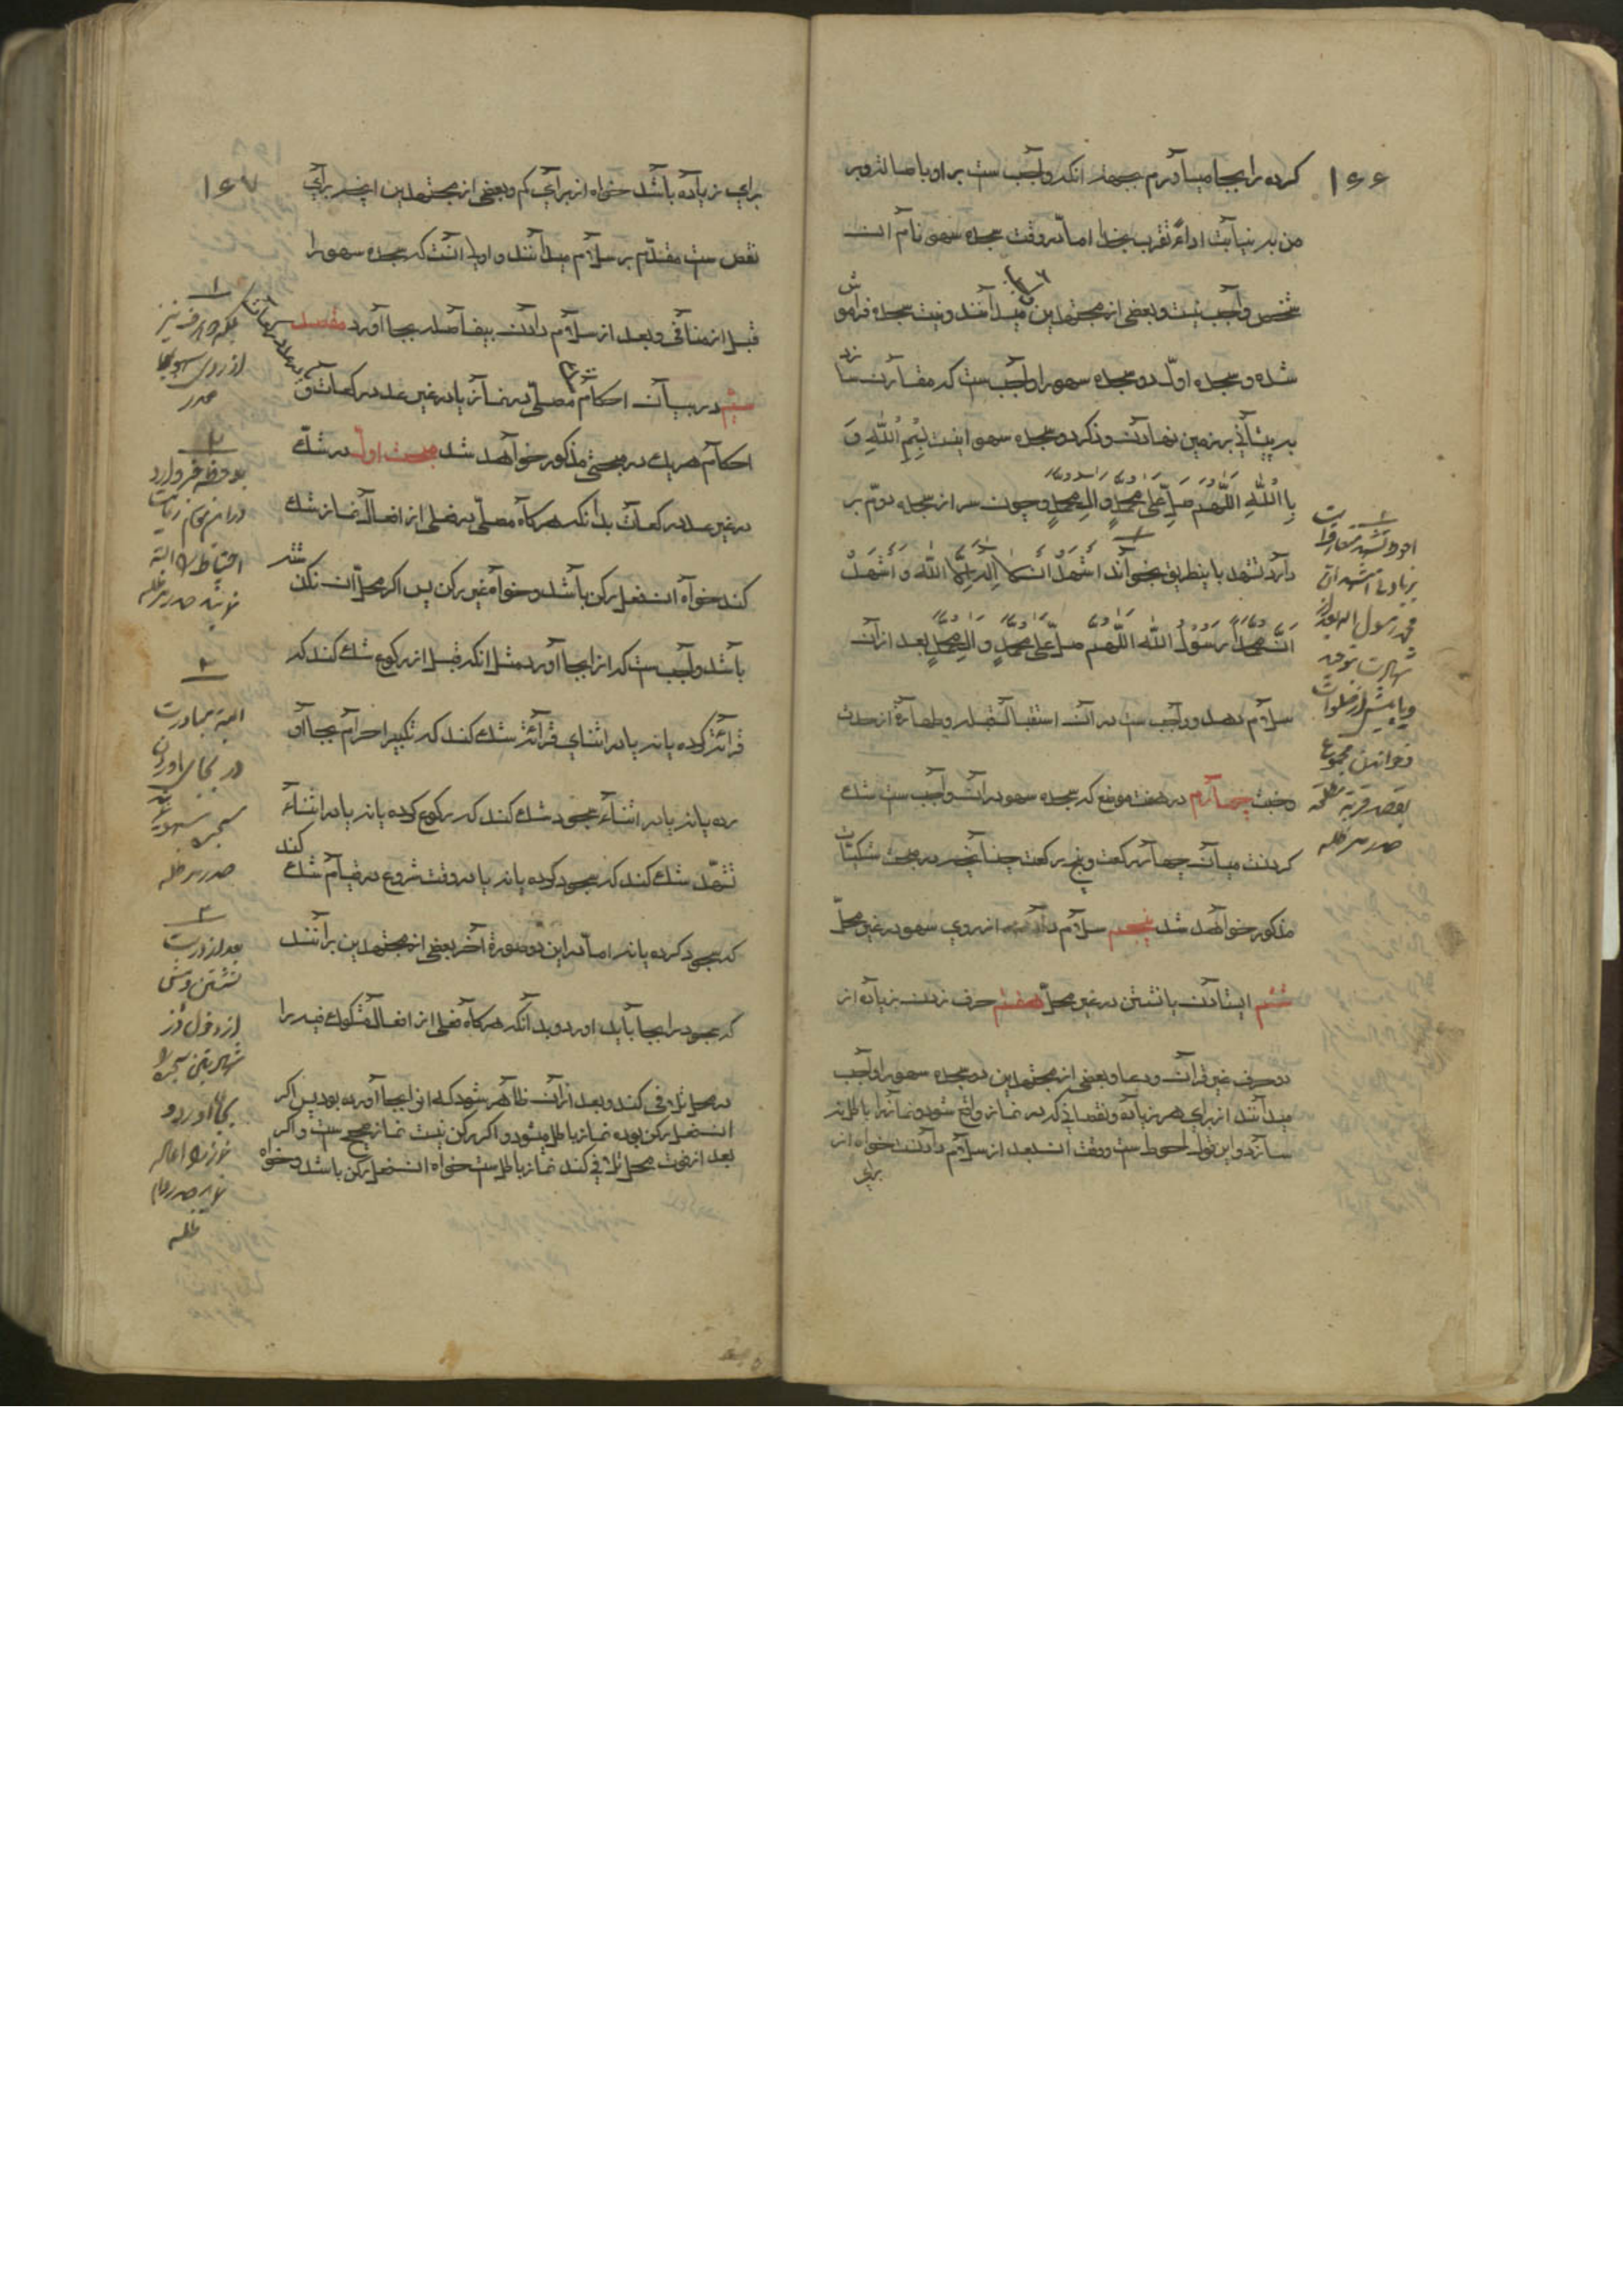 ١٤٤
كرده را بجا مياورم بجهة انكه واجب ست بر او باصالة و بر
من به نيابت اداءً تقرب بخدا اما در وقت سجده سهو نام ان
شخص واجب نيست و بعضى از مجتهدين ميدانند و نيت سجده فراموش
شده و سجده اول دو سجده سهو را واجب ست كه مقارن سازد
به پيشانى بر زمين نهادن و ذكر دو سجده سهو اينست بِسْمِ اللهِ وَ
بِااللهِ اللّهم صلّ على محمدٍ و ال محمدٍ و چون سر از سجده دوّم بر
دارد تشهد باينطريق بخواند اشهدُ ان لا اله الّا الله و اشهدُ
انّ محمداً رسولُ الله اللّهم صلّ على محمدٍ و ال محمدٍ بعد ازان
سلام دهد و واجب ست در ان استقبال قبله و طهارة از حدث
و خبث چهارم در هفت موضع كه سجده سهو دران واجب ست شك
كردنست ميان چهار ركعت و پنج ركعت چنانچه در مبحث شكيّات
مذكور خواهد شد پنجم سلام دادن از روى سهو در غير محلّ
ششم ايستادن يا نشستن در غير محلّ هفتم حرف زدن زياده از
دو حرف غير قرآن و دعا و بعضى از مجتهدين دو سجده سهو را واجب
ميدانند از براى هر زياده و نقصانى كه در نماز واقع شود و نماز را باطل نه
سازد و اين قول احوط ست و وقت ان بعد از سلام دادنست خواه از
براى
احوط تشهد متعارفست
بزيادتى اشهد ان
محمد رسول الله بعد از
شهادت بتوحيد
و خواندن مجموع
بقصد قربة مطلقه
صدر مد ظله
١٤٧
براى زياده باشد خواه از براى كم و بعضى از مجتهدين انچه براى
نقص ست مقدّم بر سلام ميدانند و اولى انست كه سجده سهو را
قبل از منافى و بعد از سلام دادن بيفاصله بجا آورد مقصد
ششم در بيان احكام مصلّى در نماز يا در غير عدد ركعات و
احكام هر يك در مبحثى مذكور خواهد شد مبحث اول در شك
در غير عدد ركعات بدانكه هركاه مصلّى در فعلى از افعال نماز شك
كند خواه ان فعل ركن باشد و خواه غير ركن پس اكر محلّ ان نكذشته
باشد واجب ست كه انرا بجا آورد مثل انكه قبل از ركوع شك كند كه
قرائة كرده يا نه يا در اثناى قرائة شك كند كه تكبير احرام بجا آو
رده يا نه يا در اثناءِ سجود شك كند كه ركوع كرده يا نه يا در اثناءِ
تشهّد شك كند كه سجود كرده يا نه يا در وقت شروع در قيام شك كند
كه سجود كرده يا نه اما در اين دو صورة آخر بعضى از مجتهدين برانند
كه سجود را بجا بايد اورد و بدانكه هركاه فعلى از افعال مشكوك فيه را
در محل تلافى كند و بعد ازان ظاهر شود كه انرا بجا آورده بود پس اكر
ان فعل ركن بوده نماز باطل ميشود و اكر ركن نيست نماز صحيح ست و اكر
بعد از فوت محل تلافى كند نماز باطل ست خواه ان فعل ركن باشد و خواه
از روى سهو بجا
صدر
احتياط را البته
صدر مد ظله
البته مبادرت
در بجا اوردن
سجده سهو
صدر مد ظله
بعد از درست
نشستن و پيش
از دخول در
بجا آورد و
ظله